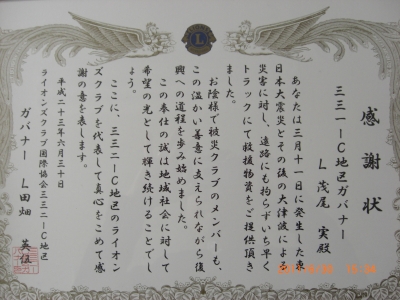 感謝状
三三一ーC地区ガバナー
L 茂尾 実殿
あなたは三月十一日に発生した東
日本大震災とその後の大津波による
災害に対し、遠路にも拘らずいち早く
トラックにて救援物資をご提供頂き
ました。
お陰様で被災クラブのメンバーも、
この温かい善意に支えられながら復
興への道程を歩み始めました。
この奉仕の誠は地域社会に対して
希望の光として輝き続けることでし
ょう。
ここに、三三二ーC地区のライオン
ズクラブを代表して真心をこめて感
謝の意を表します。
平成二十三年六月三十日
ライオンズクラブ国際協会三三二ーC地区
ガバナー L 田畑 英伍